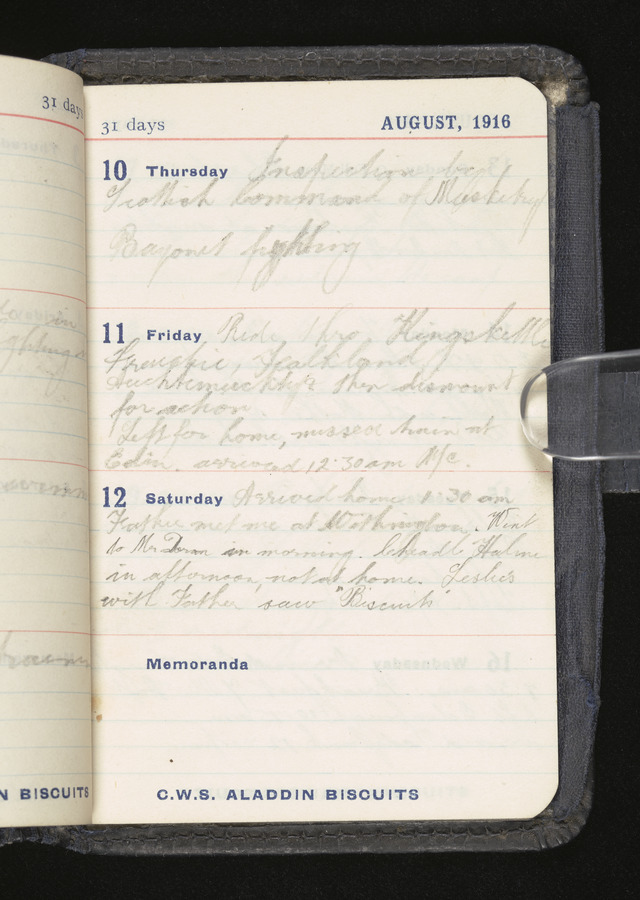 31 days
31 days AUGUST, 1916
10 Thursday Inspection by
Scottish Command of Musketry
Bayonet fighting
11 Friday Ride thro Kingskettle
Freuchie, Falkland,
Auchtermuchty & then dismount
for action.
Left for home, missed train at
Edin. arrived 12.30 am M/c.
12 Saturday Arrived home 1.30 am
Father met me at Withington. Went
to Mr in morning. Cheadle Hulme
in afternoon, not at home. Leslies
with Father saw "Biscuits"
Memoranda
N BISCUITS
C.W.S. ALADDIN BISCUITS